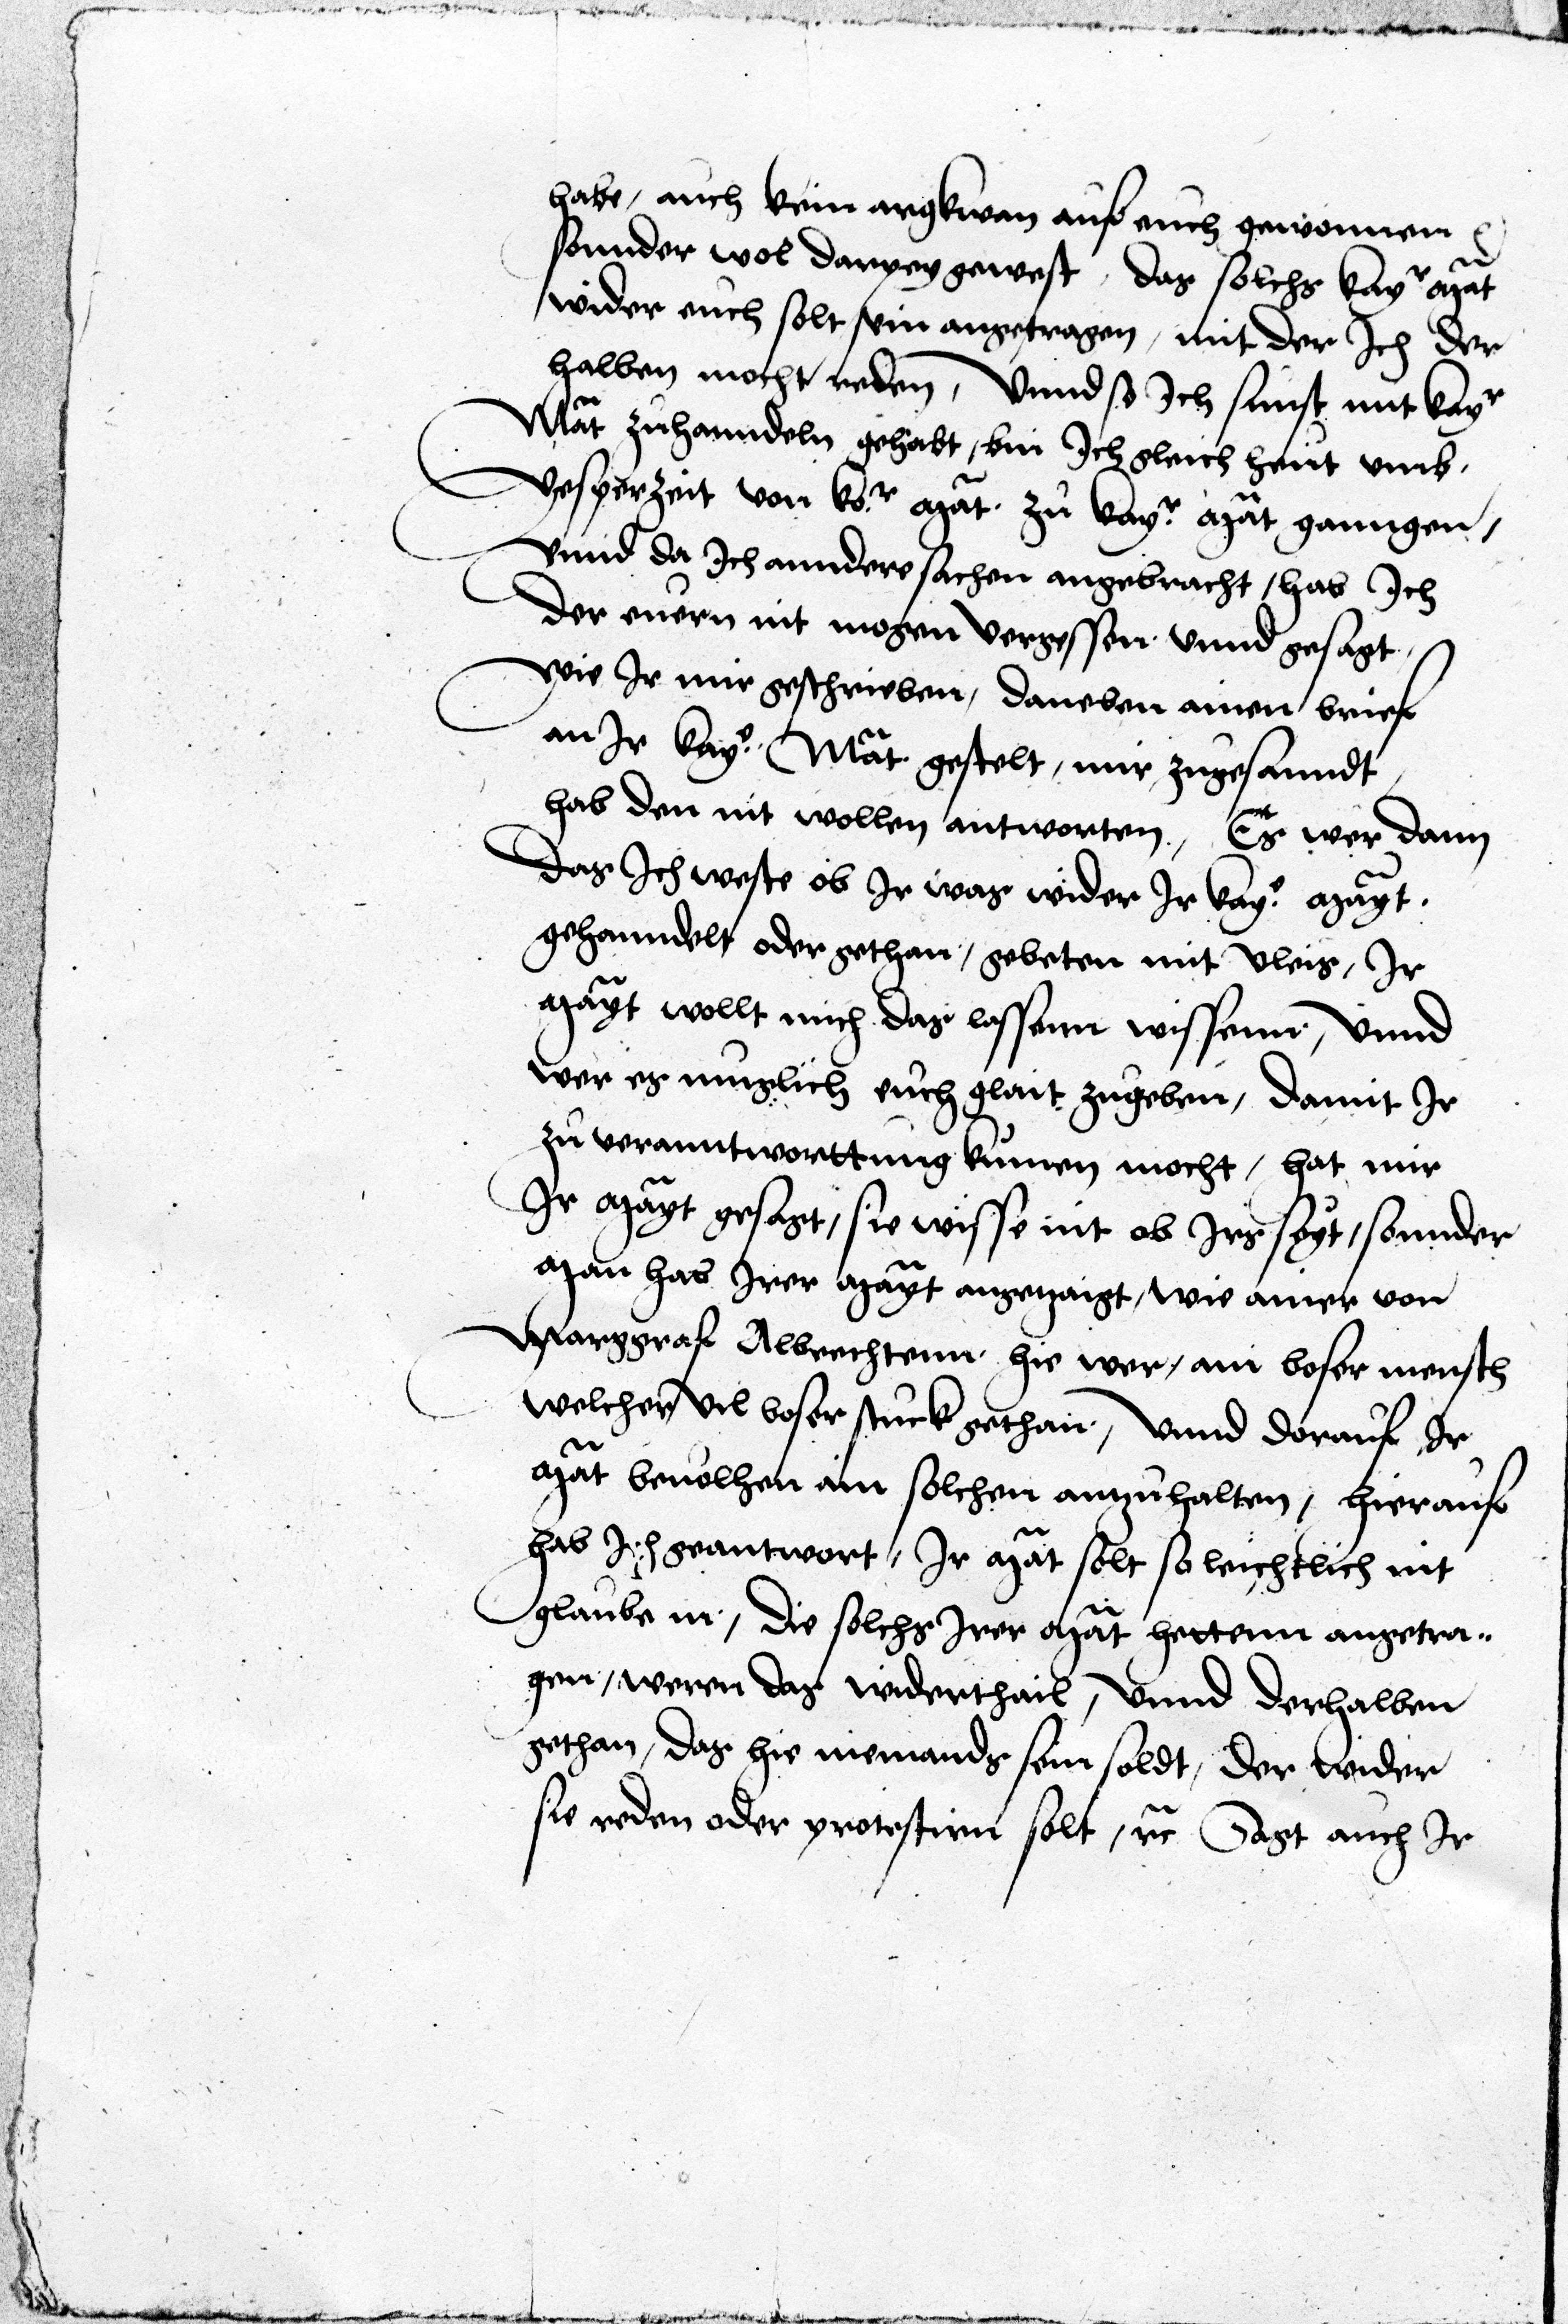 habe, auch kein argkwan auf euch gewonnen
sonnder wol darpey gewest, das solchs kayr Mat
wider euch solt sein angetragen, mit der Ich der
halben mocht reden, Vnnd so Ich sunst mit kayr
Mat zuhanndeln gehabt, bin Ich gleich heut vmb
vesperzeit von ko.r Mat. zu kay.r Mat ganngen,
vnnd da Ich anndere sachen angebracht, hab Ich
der euern nit mogen vergessen. vnnd gesagt,
wie Ir mir geschrieben, daneben ainen brief
an Ir kay.e Mat gestelt, mir zugesanndt,
hab den nit wollen antworten, Es wer dann
das Ich weste ob Ir was wider Ir kay.e Mayt.
gehanndelt oder gethan, gebeten mit vleis, Ir
Mayt wollt mich das lassenn wissenn, Vnnd
wer es muglich euch glait zugeben, damit Ir
zu veranntworttung kumen mocht, hat mir
Ir Mayt gesagt, sie wisse nit ob Irs seyt, sonnder
Man hab Irer Mayt angetzaigt, wie ainer von
Marggraf Albrechtenn hie wer, ain boser mensch
welcher vil boser stuck gethan, Vnnd dorauf Ir
Mat beuolhen ain solchen antzuhalten, hierauf
hab Ich geantwort, Ir Mat solt so leichtlich nit
glauben, die solchs Irer Mat hettenn angetra-
gen, weren das widerthail, Vnnd derhalben
gethan, das hie niemands sein soldt, der wider
sie reden oder protestirn solt, rc Sagt auch Ir